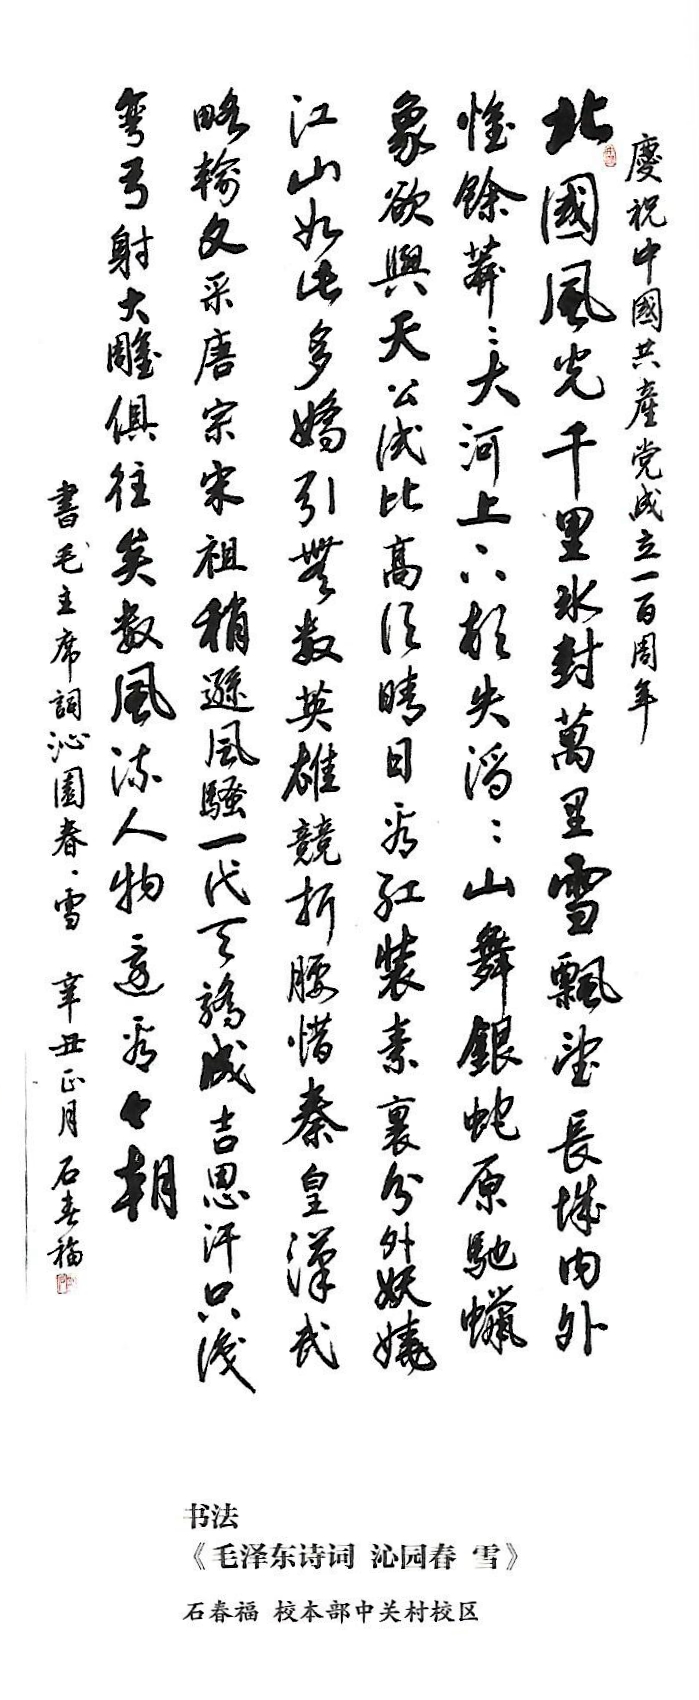 慶祝中國共產党成立一百周年
北國風光千里冰封萬里雪飄望長城内外
惟餘莽〻大河上下頓失滔〻山舞銀蛇原馳蠟
象欲與天公試比高須晴日看紅裝素裹分外妖嬈
江山如此多嬌引無数英雄競折腰惜秦皇漢武
略輸文采唐宗宋祖稍遜風騷一代天驕成吉思汗只識
彎弓射大雕俱往矣数風流人物還看今朝
書毛主席詞沁園春·雪 辛丑正月 石春福
书法
《毛泽东诗词 沁园春 雪》
石春福 校本部中关村校区